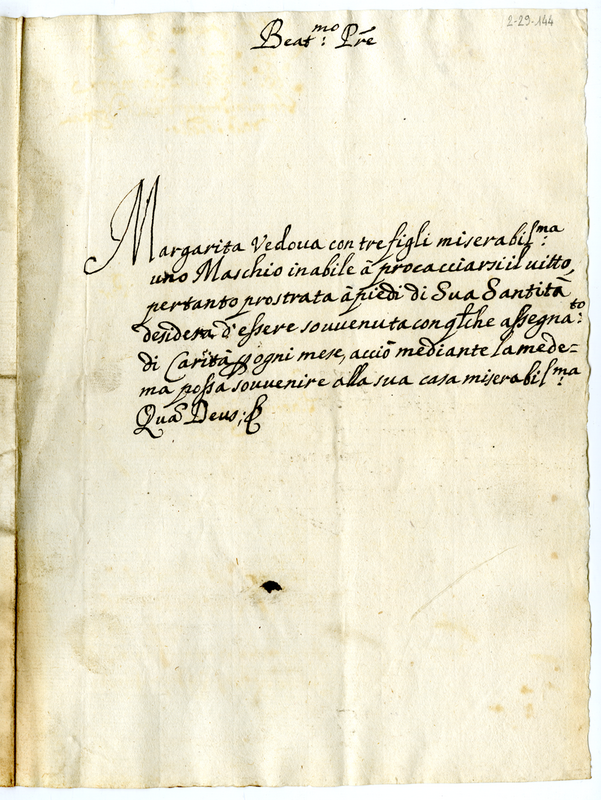 2-29-144
Beat:mo Pre
Margarita Vedova con tre figli miserabil:ma
uno Maschio inabile à procacciarsi il uitto,
pertanto prostrata à piedi di Sua Santità
desidera d'essere souuenuta con qlche assegna:to
di Carità p ogni mese, acciò mediante la mede=
ma possa souuenire alla sua casa miserabil:ma
Qua Deus,